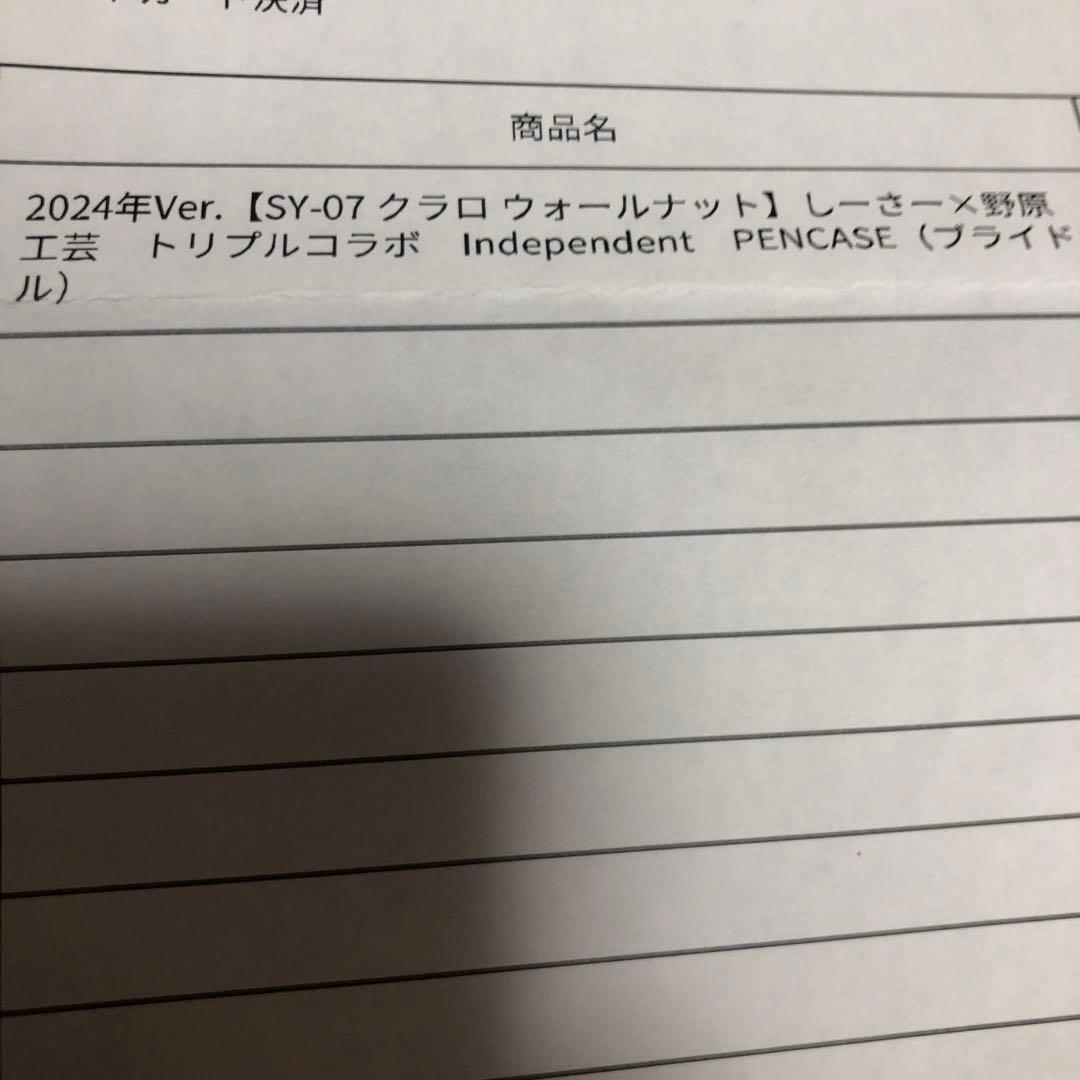 カード決済
商品名
2024年Ver.【SY-07 クラロ ウォールナット】しーさー×野原
工芸　トリプルコラボ　Independent　PENCASE（ブライド
ル）